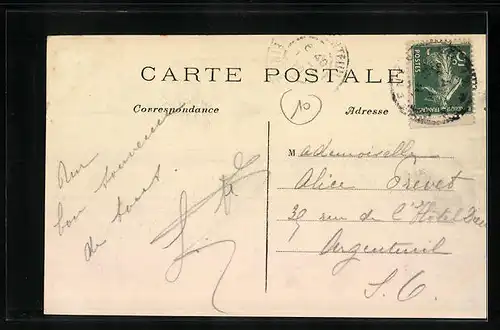 CARTE POSTALE
10
Correspondance
Adresse
Un
bon souvenir
de tous.
Mademoiselle
Alice Prevet
39 rue de l'Hôtel Dieu
Argenteuil
S. O.
5c
POSTES